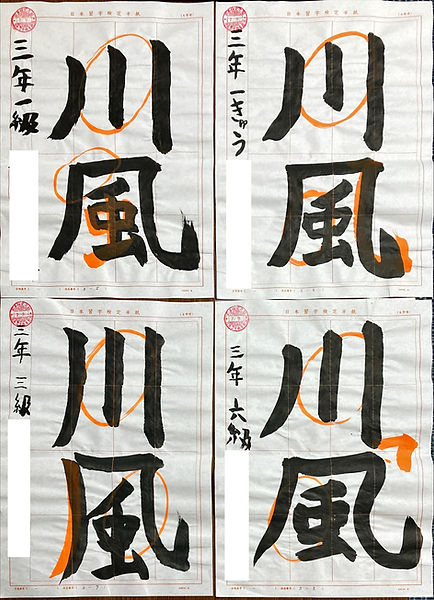 日本習字検定半紙
川風
三年一級
日本習字検定半紙
川風
三年一きゅう
日本習字検定半紙
川風
三年三級
日本習字検定半紙
川風
三年六級